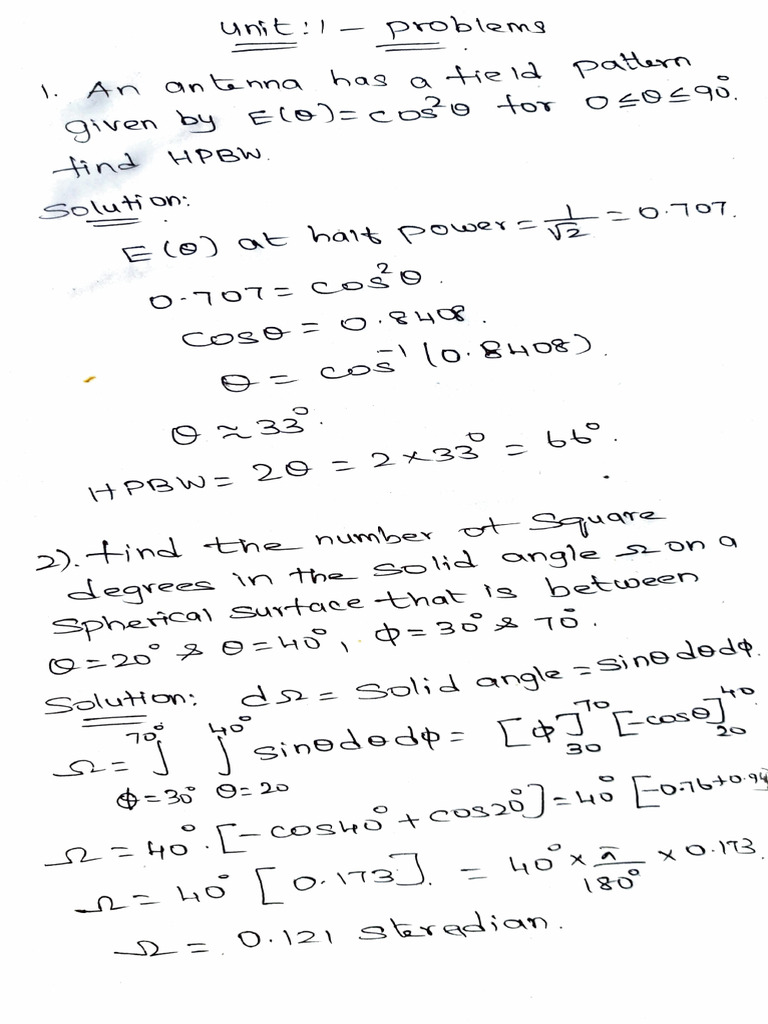 unit:1 - problems
1. An antenna has a field pattern
given by E(θ)=cos²θ for 0≤θ≤90°.
find HPBW.
Solution:
E(θ) at half power = 1/√2 = 0.707.
0.707 = cos²θ.
cosθ = 0.8408.
θ = cos⁻¹(0.8408).
θ ≈ 33°.
HPBW = 2θ = 2×33° = 66°.
2). find the number of square
degrees in the solid angle Ω on a
spherical surface that is between
θ=20° & θ=40°, φ=30° & 70°.
Solution: dΩ = solid angle = sinθdθdφ.
Ω = ∫_{φ=30°}^{70°} ∫_{θ=20}^{40°} sinθdθdφ = [φ]_{30}^{70} [-cosθ]_{20}^{40}
Ω = 40°.[-cos40° + cos20°] = 40° [-0.76+0.94
Ω = 40° [0.173]. = 40° × π/180° × 0.173.
Ω = 0.121 steradian.